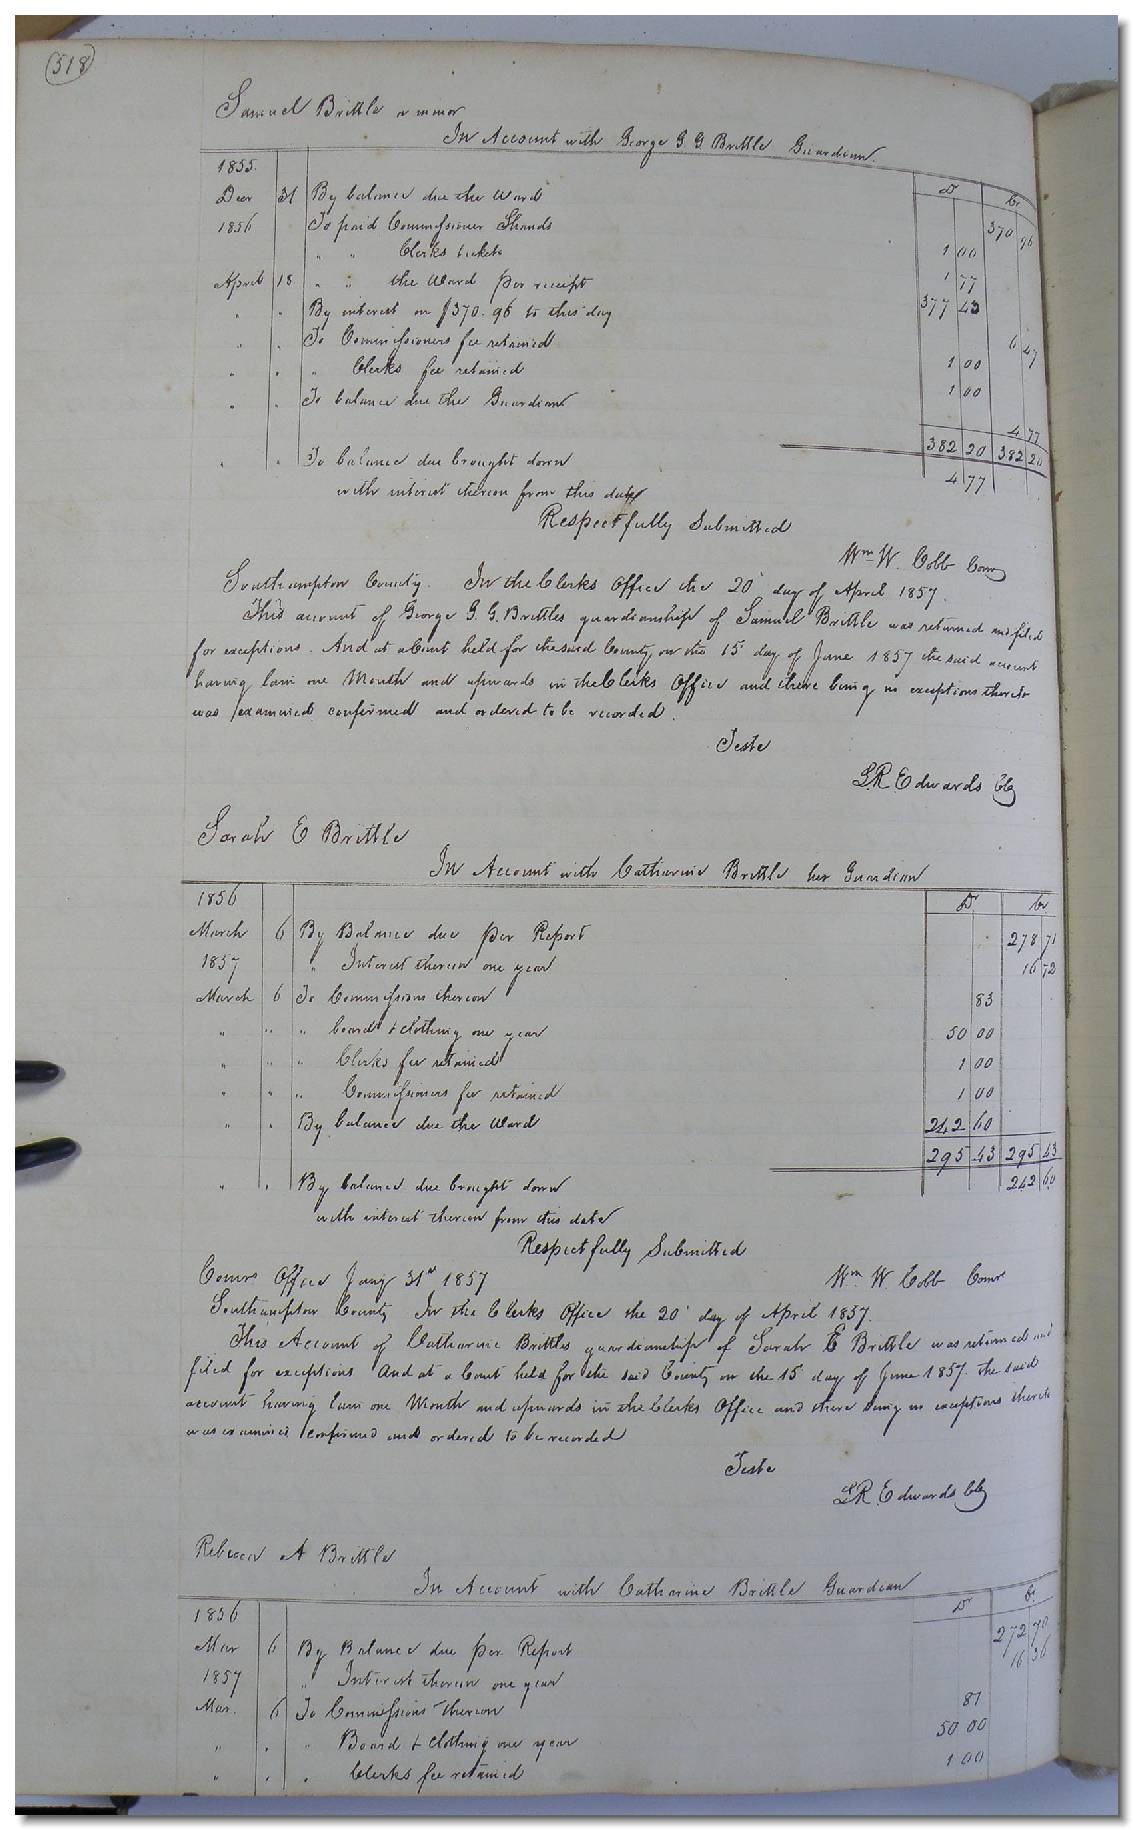 518
Samuel Brittle a minor
In Account with George G. G. Brittle Guardian.
1855. Dr Cr
Decr 31 By balance due the Ward 370 96
1856 To paid Commissioner Shands 1 00
" " Clerks tickets 1 77
April 18 " " the Ward per receipt 377 43
" " By interest on $370.96 to this day 6 47
" " To Commissioners fee retained 1 00
" " " Clerks fee retained 1 00
" " To balance due the Guardian 4 77
382 20 382 20
" " To balance due brought down 4 77
with interest thereon from this date
Respectfully Submitted
Wm W. Cobb Comr
Southampton County. In the Clerks Office the 20 day of April 1857.
This account of George G. G. Brittles guardianship of Samuel Brittle was returned and filed
for exceptions. And at a Court held for the said County on the 15 day of June 1857 the said account
having lain one Month and upwards in the Clerks Office and there being no exceptions thereto
was examined confirmed and ordered to be recorded.
Teste
L R Edwards Clk
Sarah E Brittle
In Account with Catharine Brittle her Guardian
1856 Dr Cr
March 6 By Balance due per Report 278 71
1857 " Interest thereon one year 16 72
March 6 To Commissions thereon 83
" " " board & clothing one year 50 00
" " " Clerks fee retained 1 00
" " " Commissioners fee retained 1 00
" " By balance due the Ward 242 60
295 43 295 43
" " By balance due brought down 242 60
with interest thereon from this date
Respectfully Submitted
Comrs Office Jany 31st 1857 Wm W. Cobb Comr
Southampton County In the Clerks Office the 20 day of April 1857.
This Account of Catharine Brittles guardianship of Sarah E Brittle was returned and
filed for exceptions And at a Court held for the said County on the 15 day of June 1857. the said
account having lain one Month and upwards in the Clerks Office and there being no exceptions thereto
was examined confirmed and ordered to be recorded
Teste
L R Edwards Clk
Rebecca A Brittle
In Account with Catharine Brittle Guardian
1856 Dr Cr
Mar 6 By Balance due per Report 272 70
1857 " Interest thereon one year 16 36
Mar. 6 To Commissions thereon 81
" " " Board & clothing one year 50 00
" " " Clerks fee retained 1 00